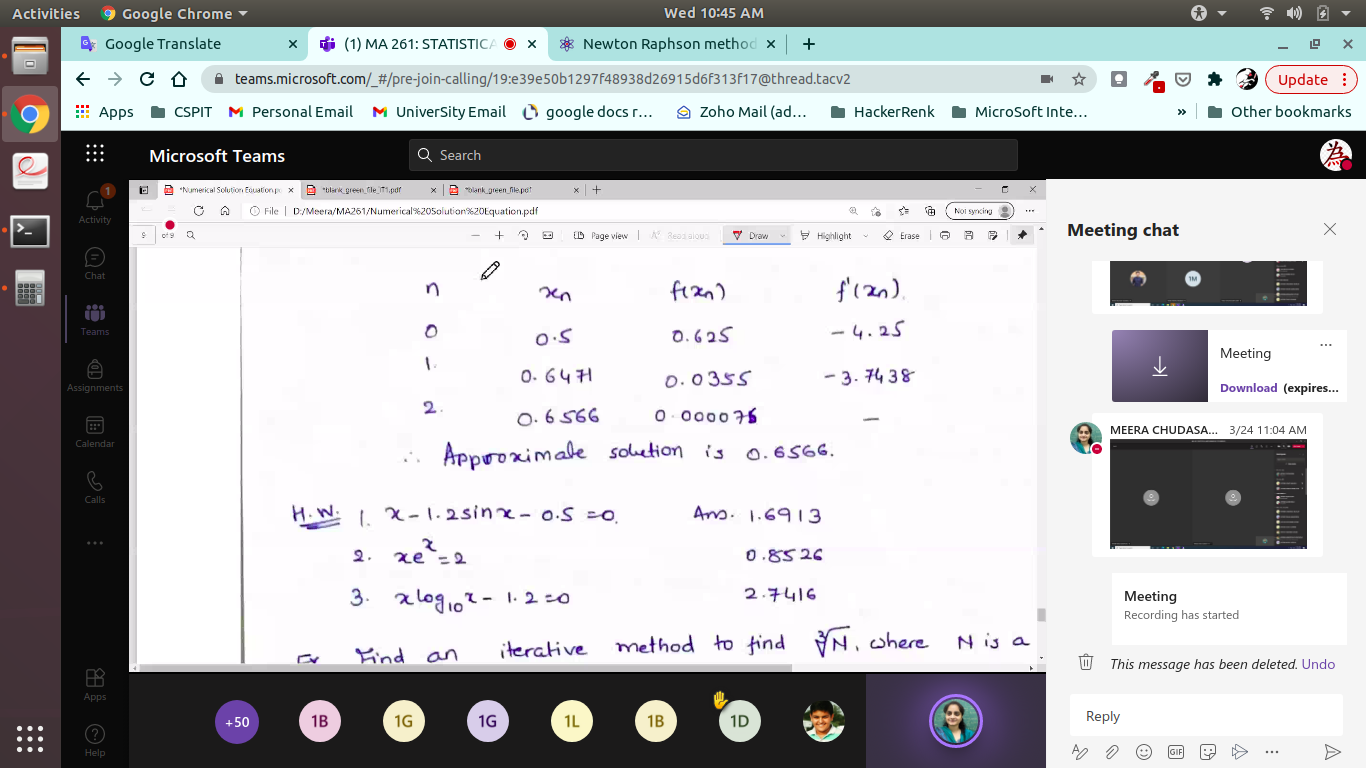 Activities
Google Chrome
Wed 10:45 AM
Google Translate
(1) MA 261: STATISTICA
Newton Raphson method
teams.microsoft.com/_#/pre-join-calling/19:e39e50b1297f48938d26915d6f313f17@thread.tacv2
Update
Apps
CSPIT
Personal Email
UniverSity Email
google docs r...
Zoho Mail (ad...
HackerRenk
MicroSoft Inte...
»
Other bookmarks
Microsoft Teams
Search
Activity
1
Chat
Teams
Assignments
Calendar
Calls
Apps
Help
*Numerical Solution Equation.p
*blank_green_file_IT1.pdf
*blank_green_file.pdf
File
D:/Meera/MA261/Numerical%20Solution%20Equation.pdf
Not syncing
9 of 9
Page view
Read aloud
Draw
Highlight
Erase
n xₙ f(xₙ) f'(xₙ).
0 0.5 0.625 -4.25
1. 0.6471 0.0355 -3.7438
2. 0.6566 0.000076 —
∴ Approximate solution is 0.6566.
H.W. 1. x-1.2sinx-0.5=0. Ans. 1.6913
2. xeˣ=2 0.8526
3. xlog₁₀x-1.2=0 2.7416
Ex. Find an iterative method to find ∛N, where N is a
+50
1B
1G
1G
1L
1B
1D
Meeting chat
1M
Meeting
Download (expires...
MEERA CHUDASA...
3/24 11:04 AM
Meeting
Recording has started
This message has been deleted. Undo
Reply
GIF
為